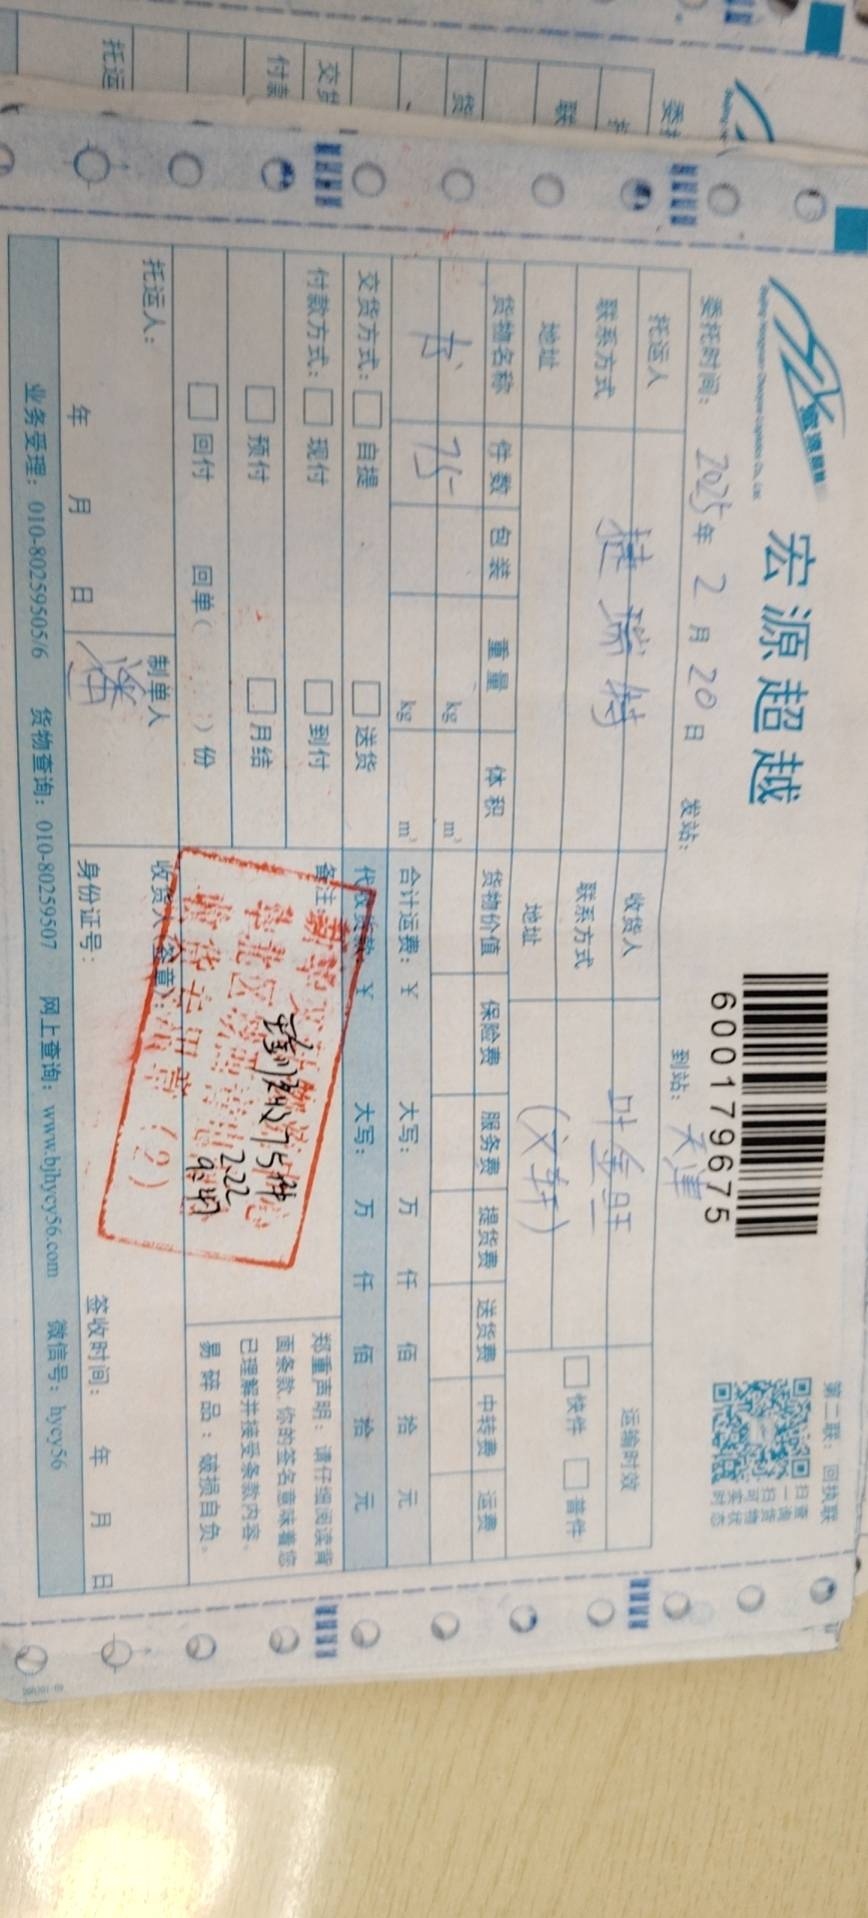 宏源超越
第二联：回执联
600179675
委托时间：2025年2月20日
发站：
到站：天津
托运人
捷瑞特
收货人
叶金旺
运输时效
联系方式
联系方式
快件
普件
地址
地址
(文轩)
货物名称 件数 包装 重量 体积 货物价值 保险费 服务费 提货费 送货费 中转费 运费
书 75 kg m³
kg m³
合计运费：￥ 大写： 万 仟 佰 拾 元
交货方式： 自提 送货
代收货款：￥ 大写： 万 仟 佰 拾 元
付款方式： 现付 到付
预付 月结
回付 回单( )份
备注
75件
2.22
郑重声明：请仔细阅读背
面条款，你的签名意味着您
已理解并接受条款内容。
易碎品：破损自负。
托运人：
年 月 日
制单人
潘
收货人(签章)：
身份证号：
签收时间： 年 月 日
业务受理：010-80259505/6 货物查询：010-80259507 网上查询：www.bjhycy56.com 微信号：hycy56